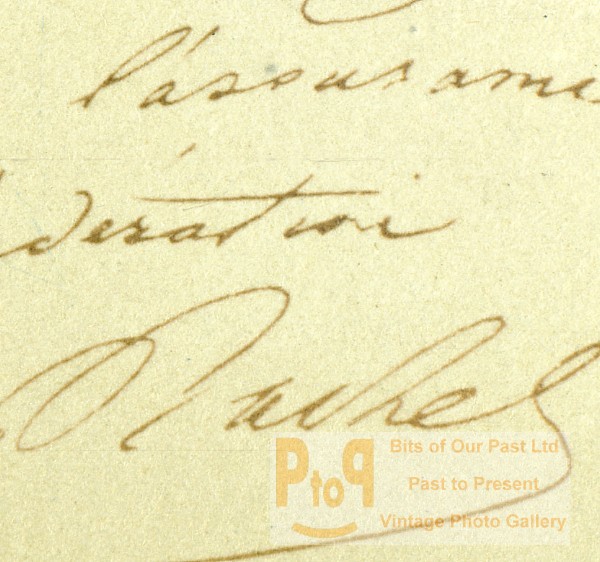 l'assurance
dération
Rachel
PtoP
Bits of Our Past Ltd
Past to Present
Vintage Photo Gallery